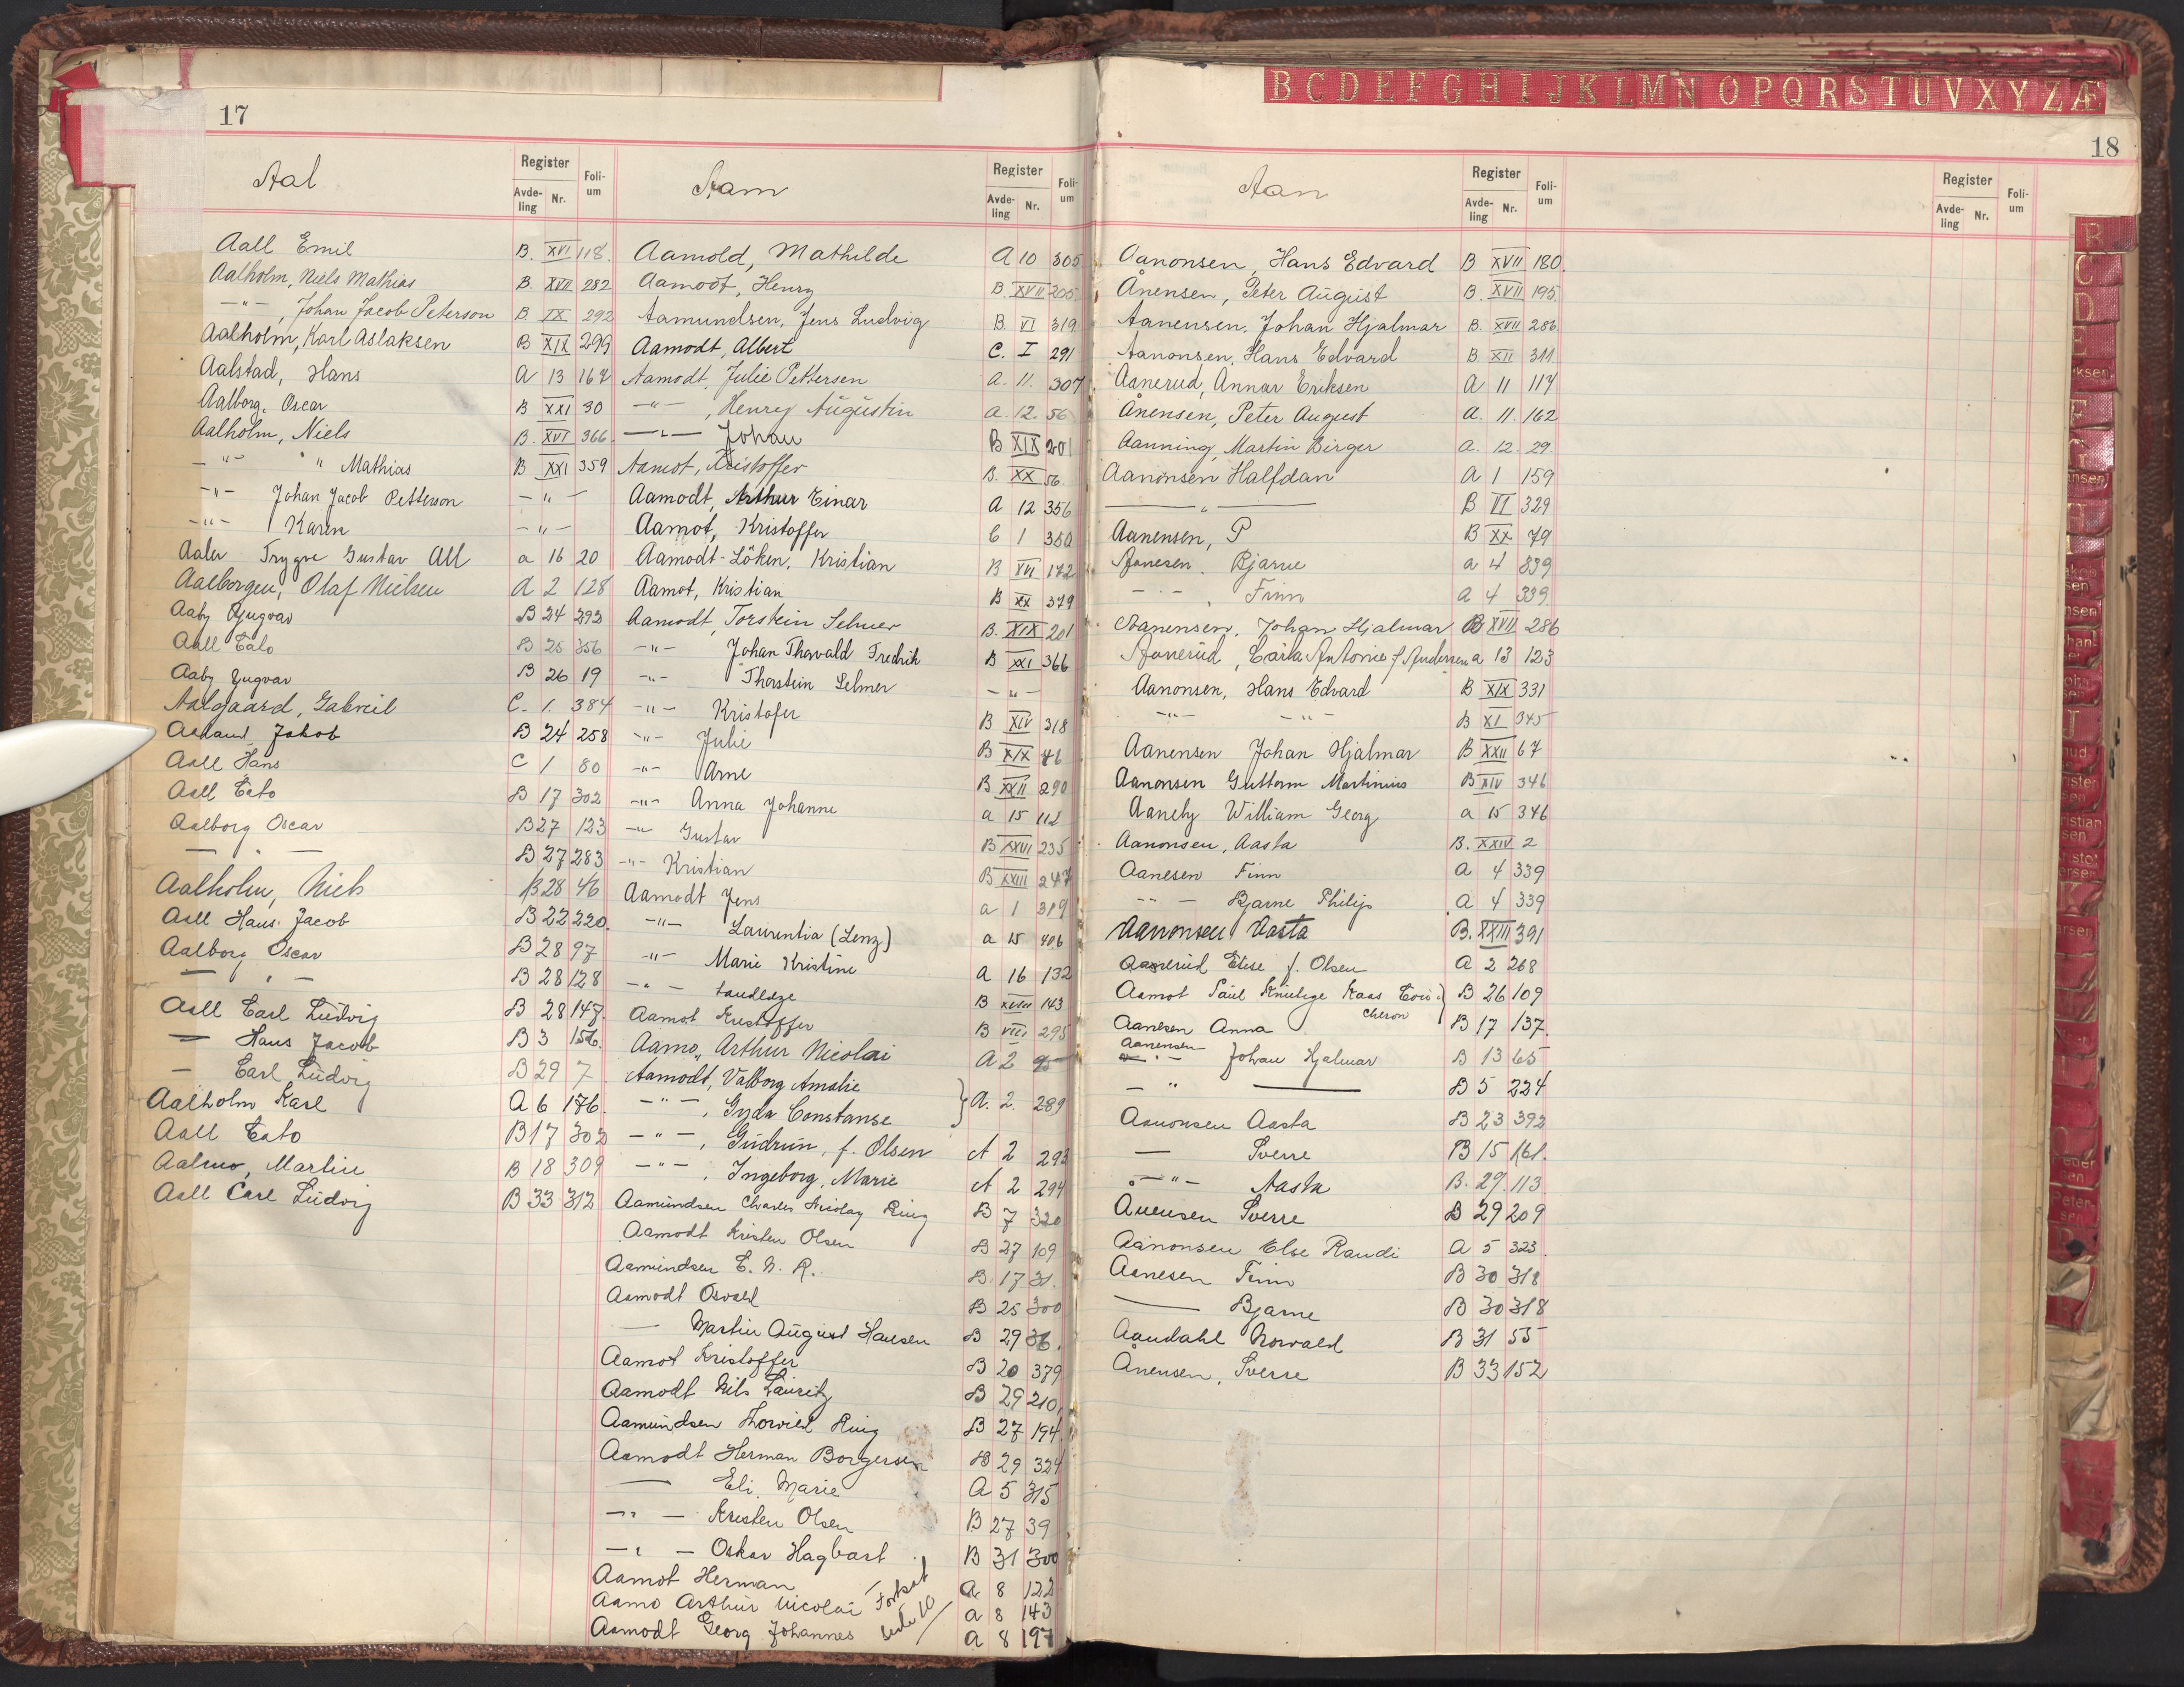 17
Aal
Register
Avde-
ling
Nr.
Foli-
um
Aall Emil B. XVI 118.
Aalholm, Niels Mathias B. XVII 282
—"—, Johan Jacob Peterson B. IX 292
Aalholm, Karl Aslaksen B XIX 299
Aalstad, Hans A 13 167
Aalborg, Oscar B XXI 30
Aalholm, Niels B. XVI 366
—"— " Mathias B XXI 359
—"— Johan Jacob Petterson —"—
—"— Karen —"—
Aaler Trygve Gustav All a 16 20
Aalborgen, Olaf Nielsen A 2 128
Aaby Yngvar B 24 393
Aall Cato B 25 356
Aaby Yngvar B 26 19
Aalgaard, Gabreil C. 1. 384
Jakob B 24 258
Aall Hans C 1 80
Aall Cato B 17 302
Aalborg Oscar B 27 123
— " — B 27 283
Aalholm, Niels B 28 46
Aall Hans Jacob B 22 220.
Aalborg Oscar B 28 97
— " — B 28 128
Aall Carl Ludvig B 28 147.
— Hans Jacob B 3 156.
— Carl Ludvig B 29 7
Aalholm Karl A 6 176.
Aall Cato B 17 302
Aalmo, Martin B 18 309
Aall Carl Ludvig B 33 312
Aam
Register
Avde-
ling
Nr.
Foli-
um
Aamold, Mathilde A 10 305
Aamodt, Henry B. XVII 205
Aamundsen, Jens Ludvig B. VI 319
Aamodt, Albert C. I 291
Aamodt, Julie Pettersen A. 11. 307
—"—, Henry Augustin A. 12. 56
—"— Johan B XIX 201
Aamot, Kristoffer B. XX 56
Aamodt, Arthur Einar A 12 356
Aamot, Kristoffer C 1 350
Aamodt-Löken, Kristian B VII 172
Aamot, Kristian B XX 379
Aamodt, Torstein Selmer B. XIX 201
—"— Johan Thorvald Fredrik B XXI 366
—"— Thorstein Selmer —"—
—"— Kristofer B XIV 318
—"— Julie B XIX 46
—"— Arne B XXII 290
—"— Anna Johanne a 15 112
—"— Gustav B XXVI 235
—"— Kristian B XXIII 247
Aamodt Jens a 1 319
—"— Laurentia (Lenz) a 15 406
—"— Marie Kristine A 16 132
—"— B 143
Aamot Kristoffer B VIII 295
Aamo, Arthur Nicolai A 2 95
Aamodt, Valborg Amalie
—"—, Gyda Constanse } A. 2. 289
—"—, Gudrun, f. Olsen A 2 293
—"—, Ingeborg, Marie A 2 294
Aamundsen Charles Nicolay Ring B 7 320
Aamodt Kristen Olsen B 27 109
Aamundsen C. N. R. B. 17 31.
Aamodt Osvald B 25 300
— Martin August Hansen B 29 36.
Aamot Kristoffer B 20 379
Aamodt Nils Lauritz B 29 210
Aamundsen Thorvild Ring B 27 194
Aamodt Herman Borgersen B 29 324
— Eli. Marie A 5 315
—"— Kristen Olsen B 27 39
—"— Oskar Hagbart B 31 300
Aamot Herman A 8 122
Aamo Arthur Nicolai a 8 143
Aamodt Georg Johannes a 8 197
Fortsat side 10
B C D E F G H I J K L M N O P Q R S T U V X Y Z Æ
18
Aan
Register
Avde-
ling
Nr.
Foli-
um
Aanonsen, Hans Edvard B XVII 180.
Ånensen, Peter August B. XVII 195
Aanensen, Johan Hjalmar B. XVII 286
Aanonsen, Hans Edvard B. XII 311
Aanerud, Annar Eriksen A 11 117
Ånensen, Peter August A. 11. 162
Aanning, Martin Birger A. 12. 29.
Aanonsen Halfdan A 1 159
— " — B VI 329
Aanensen, P B XX 79
Aanesen, Bjarne a 4 339
— " —, Finn A 4 339
Aanensen, Johan Hjalmar B XVII 286
Aanerud, Carla Antonie f Andersen a 13 123
Aanonsen, Hans Edvard B XIX 331
—"— —"— B XI 345
Aanensen Johan Hjalmar B XXII 67
Aanonsen Guttorm Martinius B XIV 346
Aaneby William Georg a 15 346
Aanonsen, Aasta B. XXIV 2
Aanesen Finn A 4 339
—"— Bjarne Philip A 4 339
Aanonsen Aasta B. XXIII 391
Aanerud Elise f. Olsen A 2 268
Aamot Paul Knutzge Kaas B 26 109
Aanesen Anna B 17 137.
Aanensen
—"— Johan Hjalmar B 13 65
— " — — B 5 224
Aanonsen Aasta B 23 392
— Sverre B 15 161.
—"— Aasta B. 29. 113
Anensen Sverre B 29 209
Aanonsen Else Randi A 5 323.
Aanesen Finn B 30 318
— Bjarne B 30 318
Aandahl Norvald B 31 55
Ånensen, Sverre B 33 152
Register
Avde-
ling
Nr.
Foli-
um